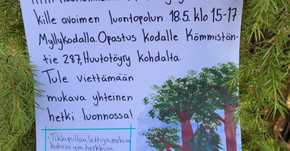 kille avoimen luontopolun 18.5. klo 15-17
Myllykodalla. Opastus Kodalle Kömmistön-
tie 287, Huutotöyry kohdalta.
Tule viettämään
mukava yhteinen
hetki luonnossa!